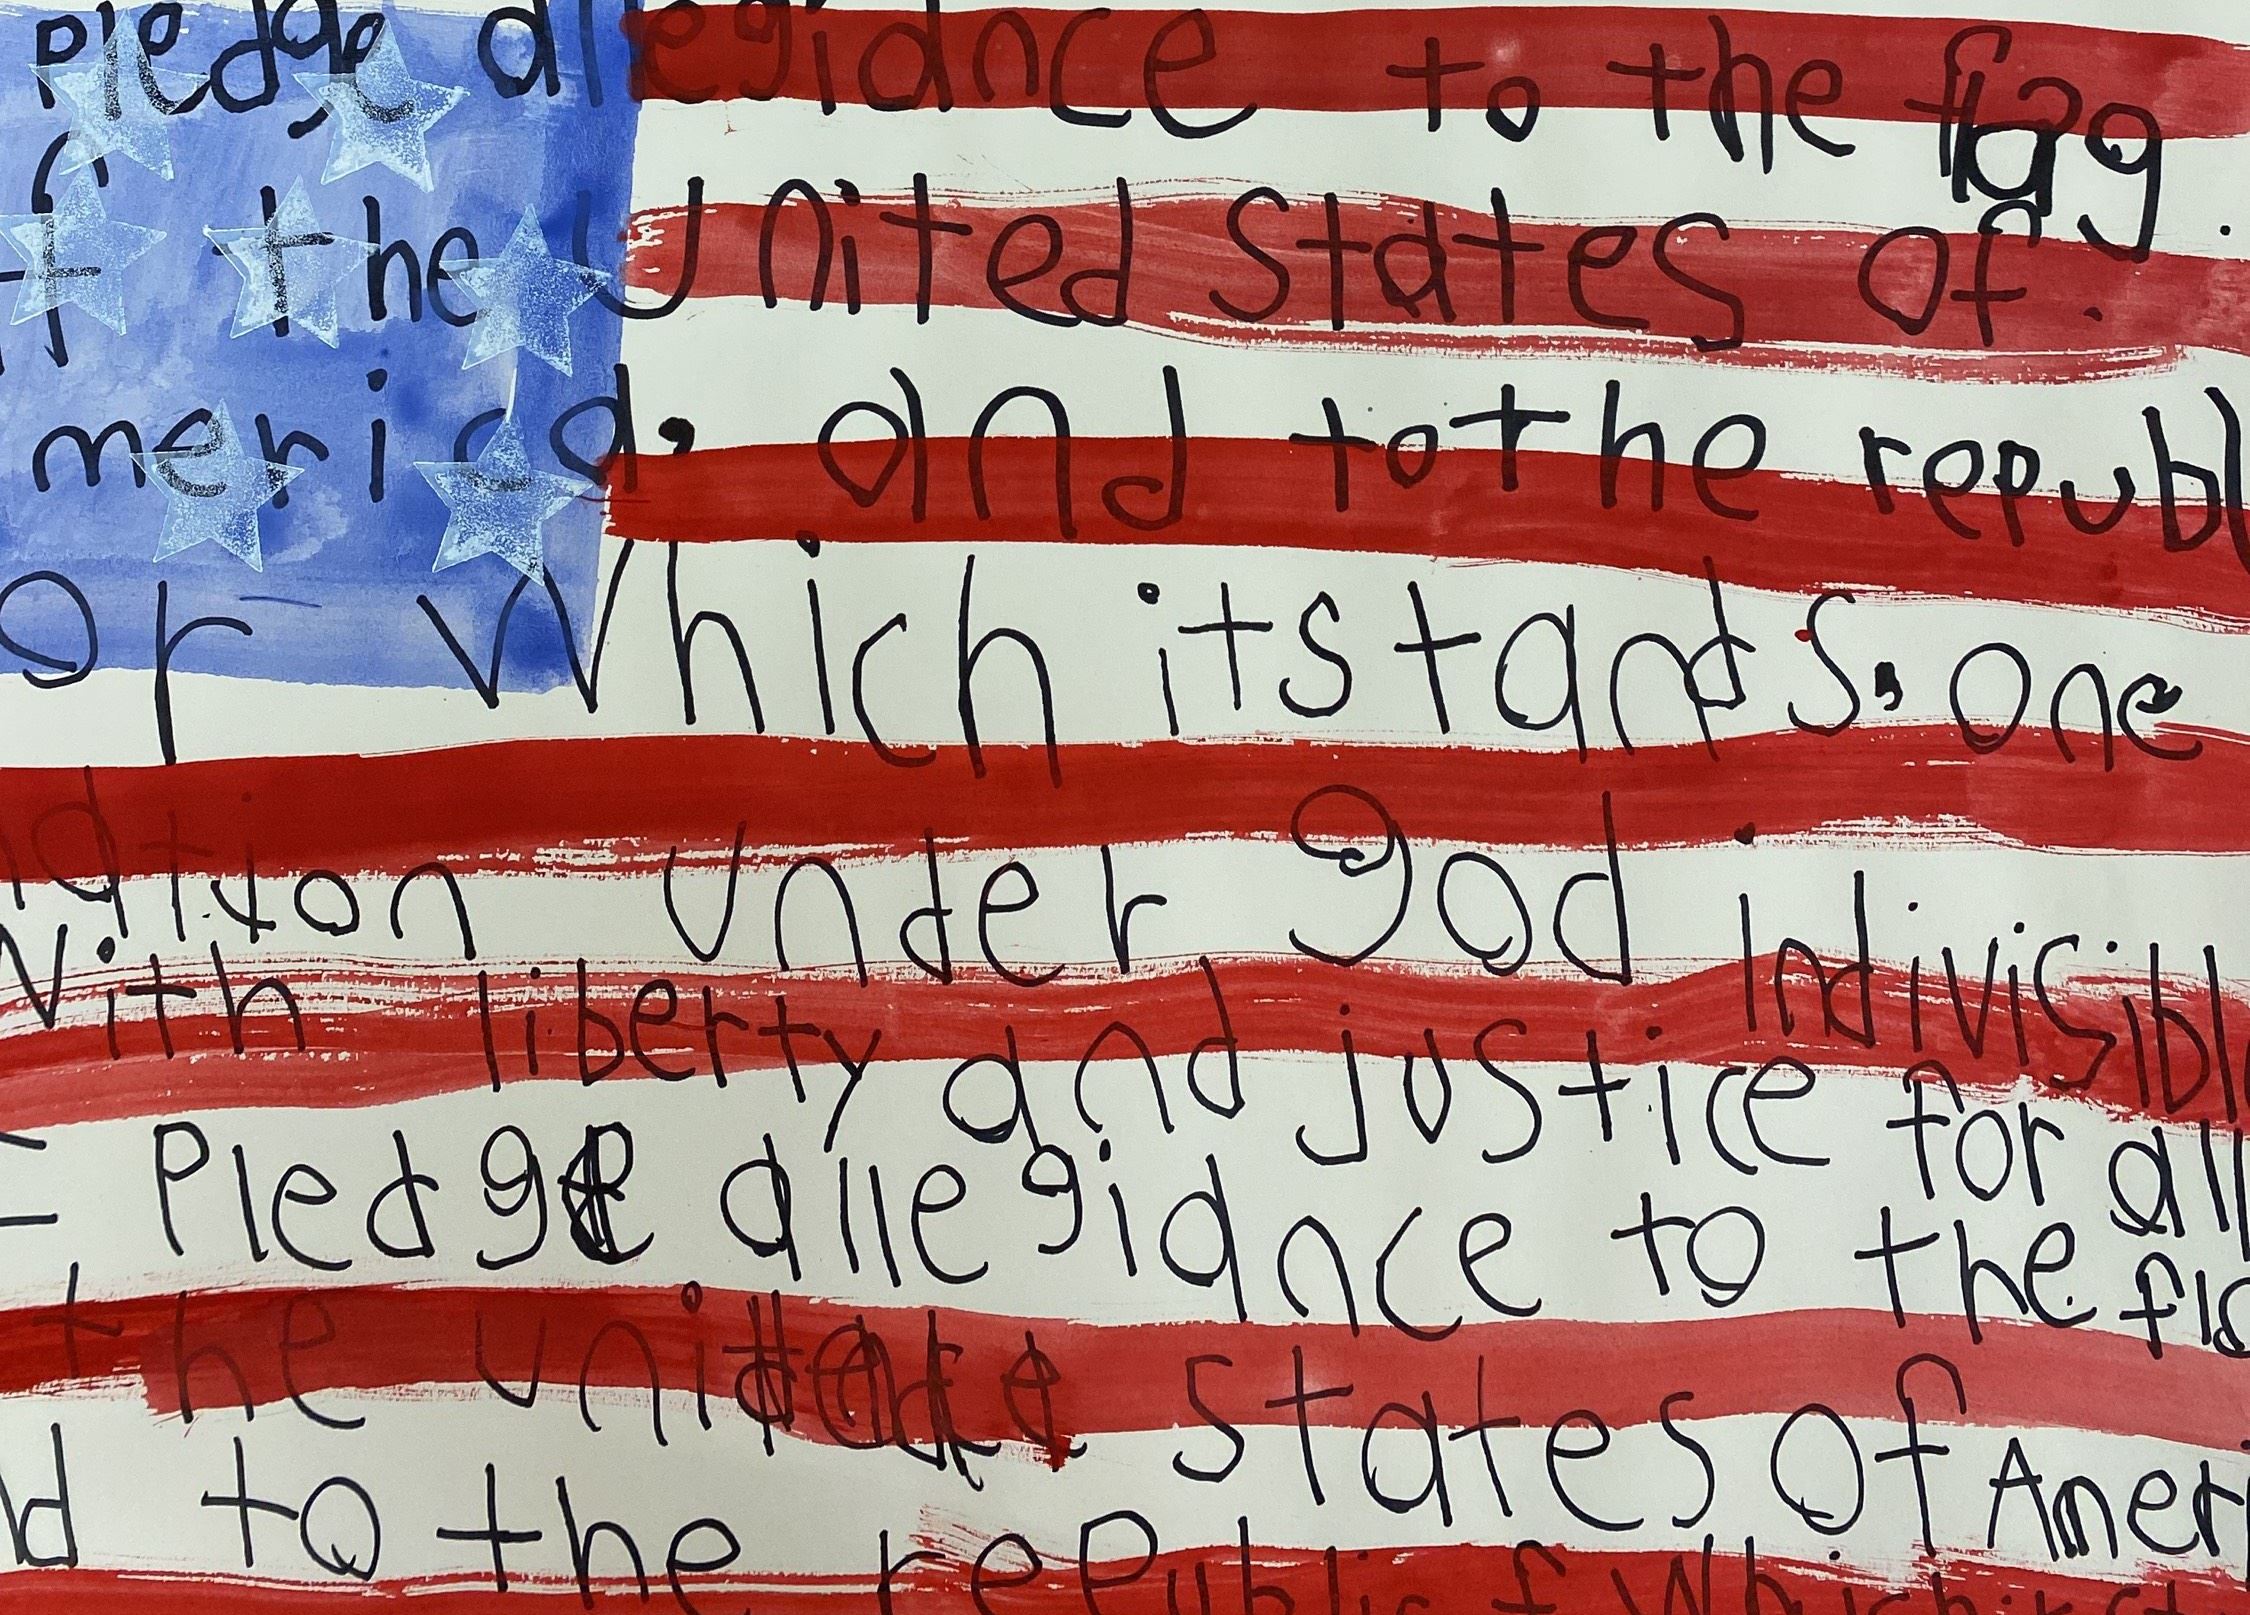 Pledge allegiance to the flag.
f the United States of.
merica, and to the republ
or which it stands, one
nation under god indivisible
With liberty and justice for all
I Pledge allegiance to the fla
the united states of Ameri
nd to the republic f which it st